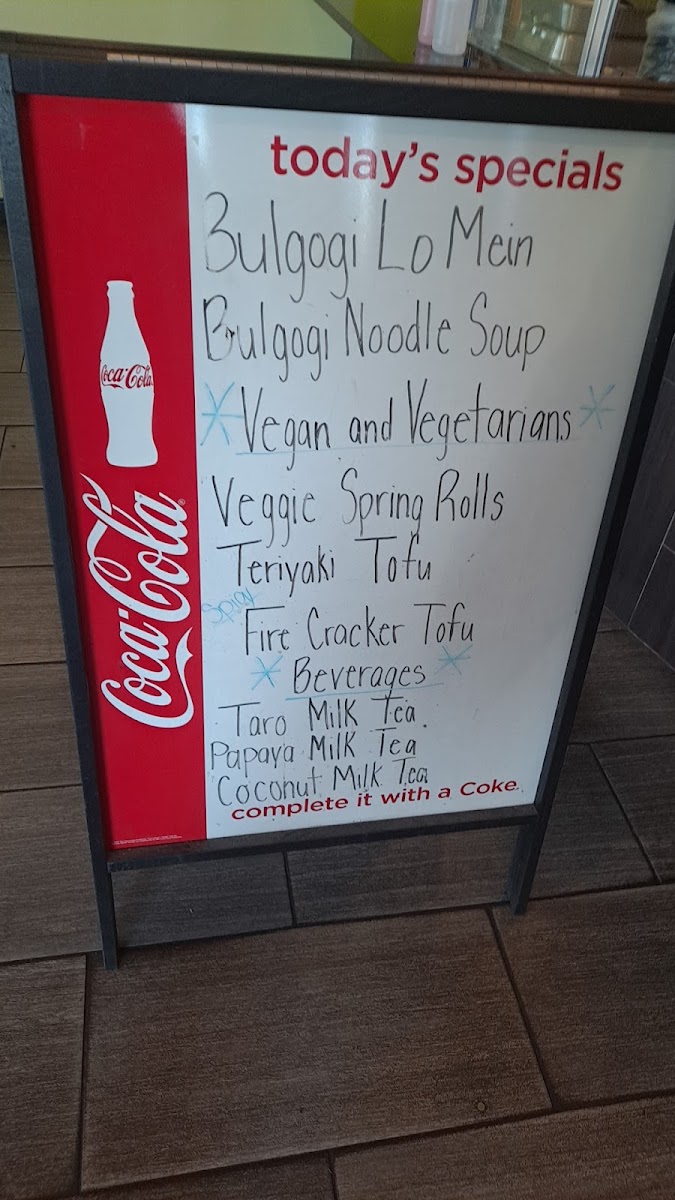 today's specials
Bulgogi Lo Mein
Bulgogi Noodle Soup
Vegan and Vegetarians
Veggie Spring Rolls
Teriyaki Tofu
Spicy
Fire Cracker Tofu
Beverages
Taro Milk Tea
Papaya Milk Tea
Coconut Milk Tea
complete it with a Coke.
Coca-Cola
Coca-Cola®